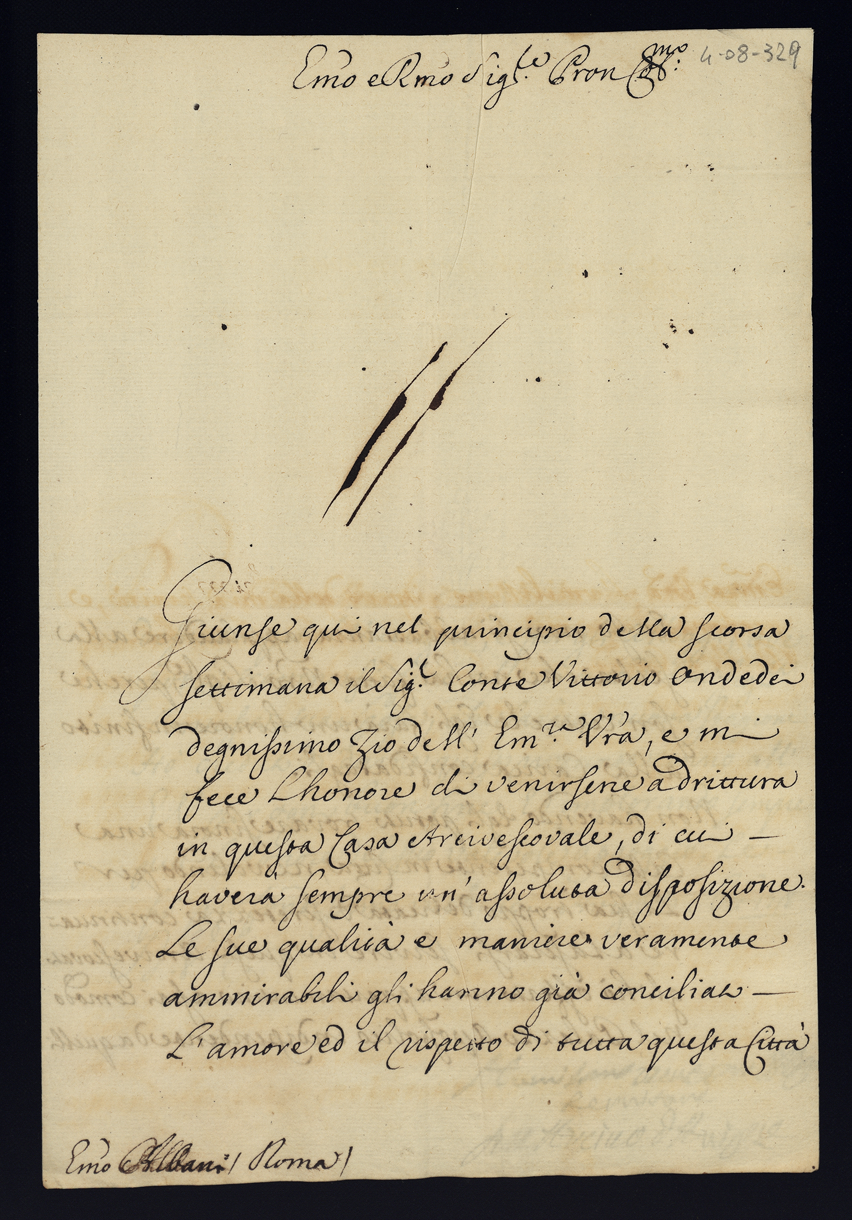 4-08-329
Em̃o e Rm̃o Sig.re Pron Col.mo
Giunse qui nel principio della scorsa
settimana il Sig.r Conte Vittorio Ondedei
degnissimo Zio dell' Em.za Vr̃a, e mi
fece L'honore di venirsene a drittura
in questa Casa Arcivescovale, di cui —
haverà sempre un' assoluta disposizione.
Le sue qualità e maniere veramente
ammirabili gli hanno già conciliato —
L'amore ed il rispetto di tutta questa Città
Em̃o Albani / Roma /